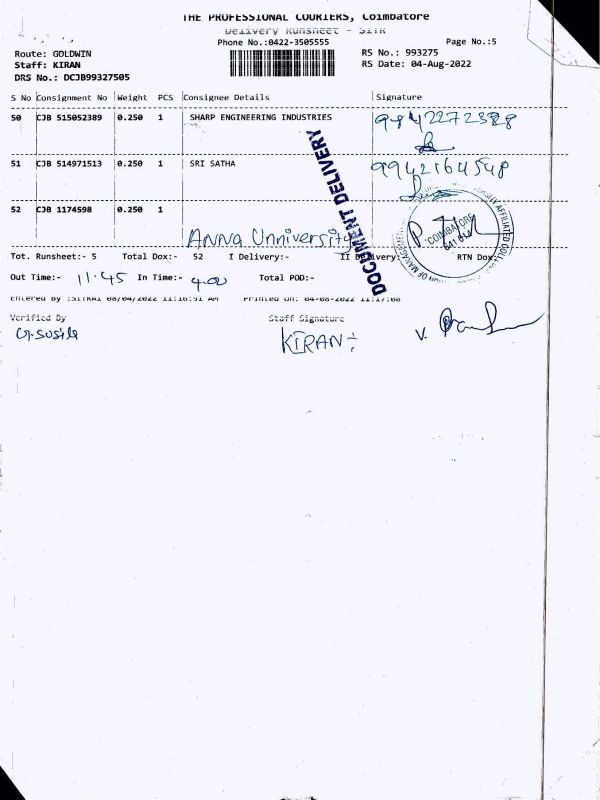 THE PROFESSIONAL COURIERS, Coimbatore
Delivery Runsheet - SITR
Phone No.:0422-3505555
Page No.:5
Route: GOLDWIN
RS No.: 993275
Staff: KIRAN
RS Date: 04-Aug-2022
DRS No.: DCJB99327505
S No Consignment No Weight PCS Consignee Details Signature
50 CJB 515052389 0.250 1 SHARP ENGINEERING INDUSTRIES 9842272388
51 CJB 514971513 0.250 1 SRI SATHA 9942164548
52 CJB 1174598 0.250 1
Anna Unniversity
DOCUMENT DELIVERY
COIMBATORE
Tot. Runsheet:- 5 Total Dox:- 52 I Delivery:- II Delivery:- RTN Dox:-
Out Time:- 11.45 In Time:- 4.00 Total POD:-
Entered By :SITRA1 08/04/2022 11:16:51 AM Printed On: 04-08-2022 11:17:08
Verified By Staff Signature
G.Susila KIRAN